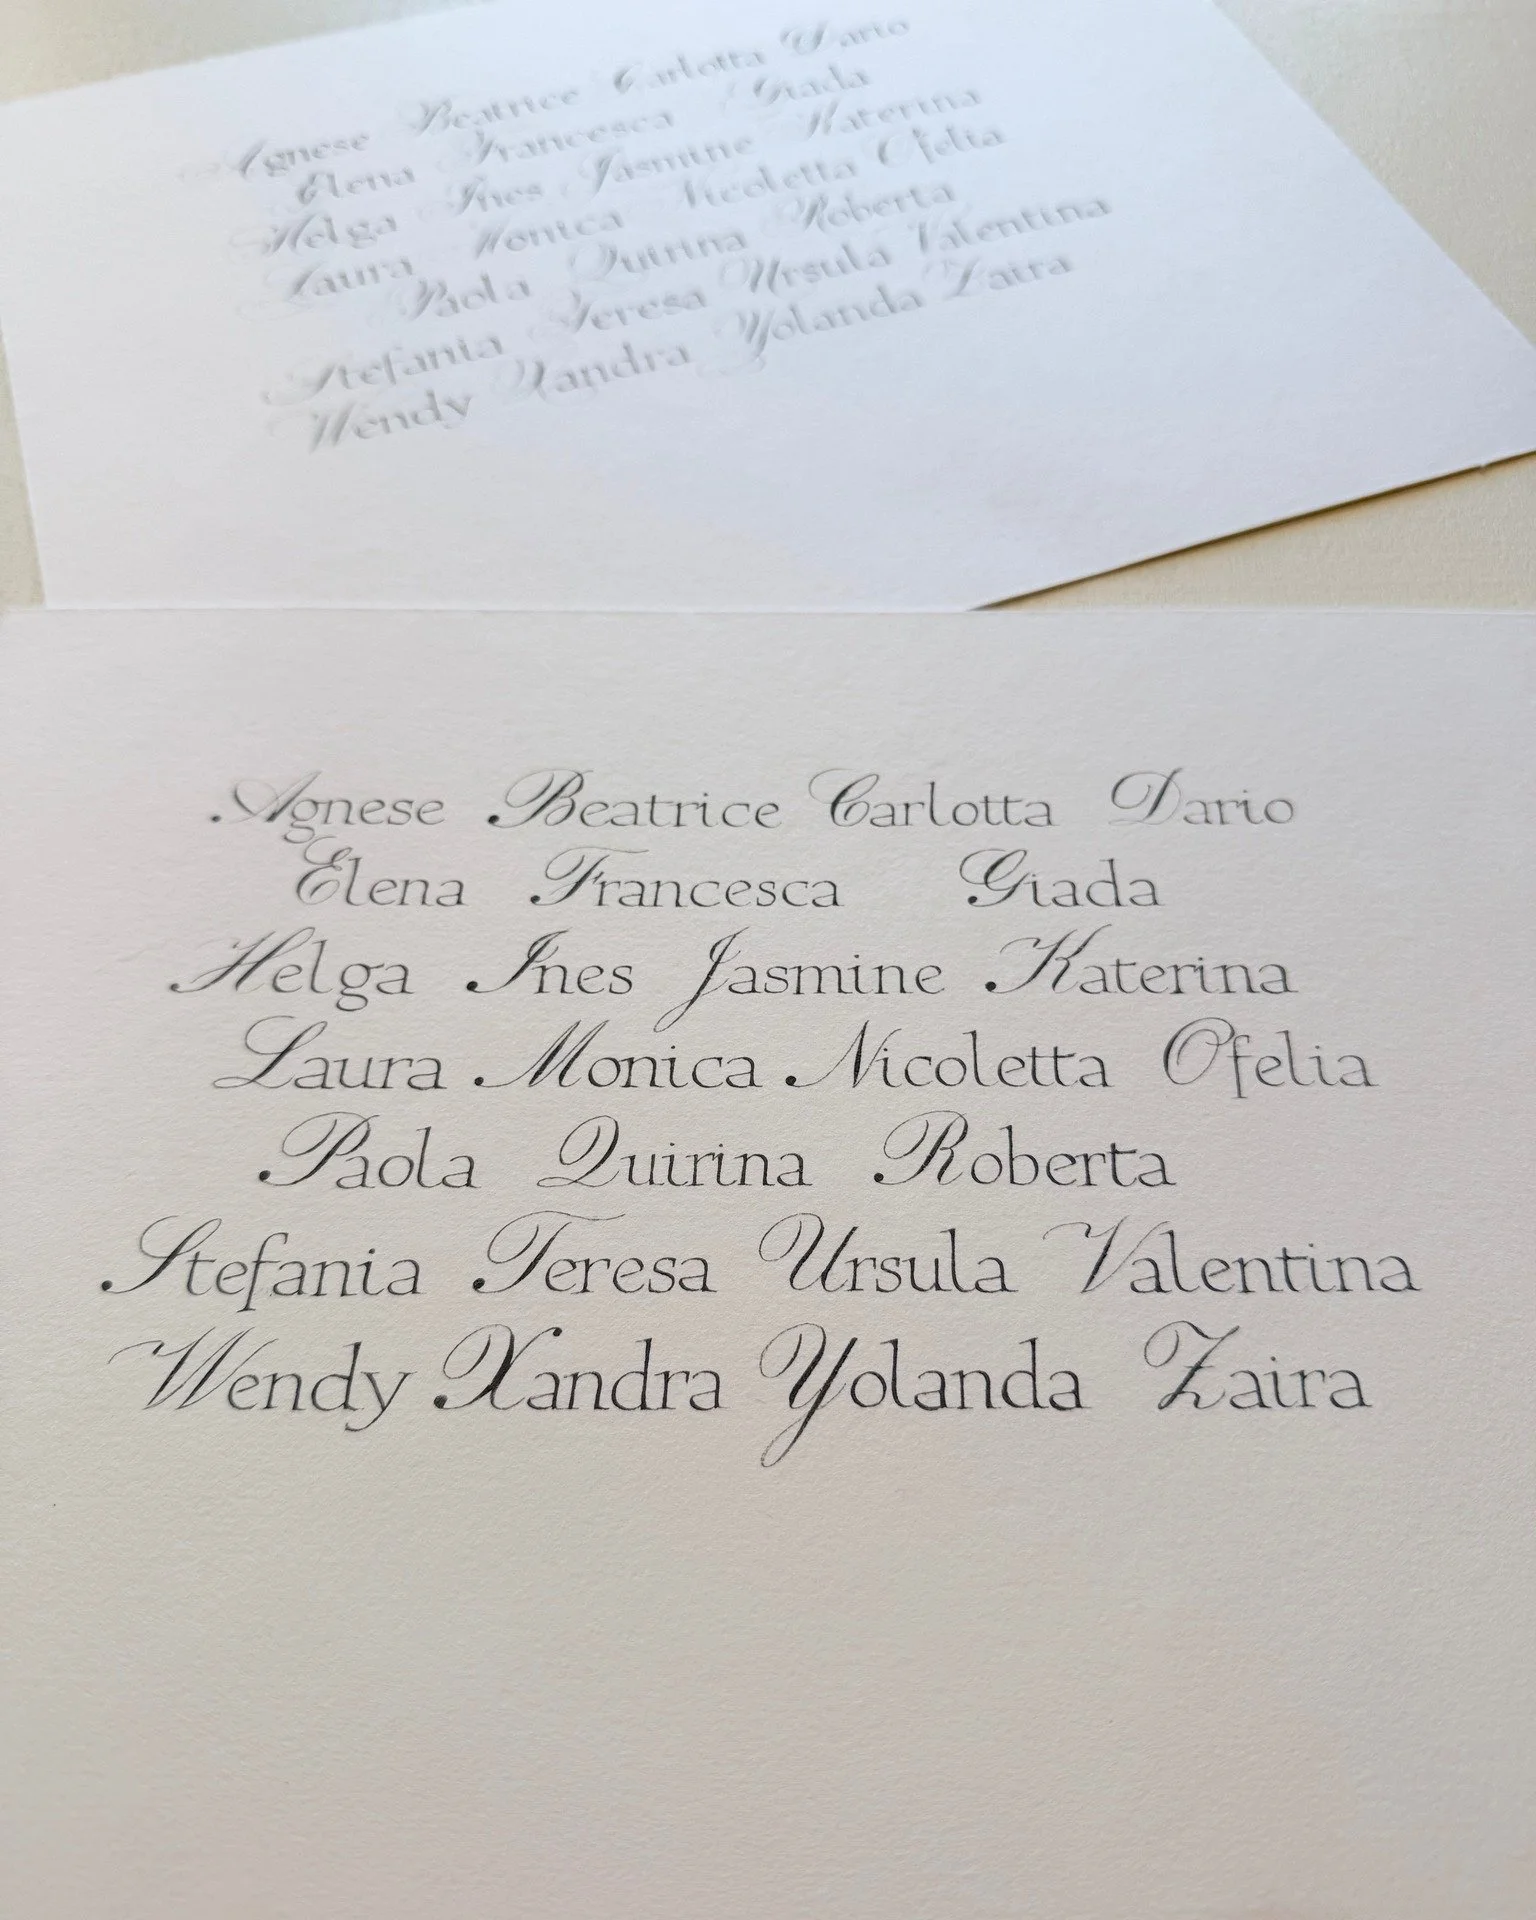 Agnese Beatrice Carlotta Dario
Elena Francesca Giada
Helga Ines Jasmine Katerina
Laura Monica Nicoletta Ofelia
Paola Quirina Roberta
Stefania Teresa Ursula Valentina
Wendy Xandra Yolanda Zaira
Agnese Beatrice Carlotta Dario
Elena Francesca Giada
Helga Ines Jasmine Katerina
Laura Monica Nicoletta Ofelia
Paola Quirina Roberta
Stefania Teresa Ursula Valentina
Wendy Xandra Yolanda Zaira